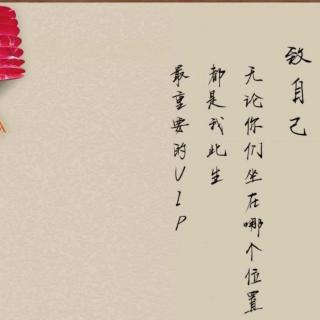 致自己
无论你们坐在哪个位置
都是我此生
最重要的VIP